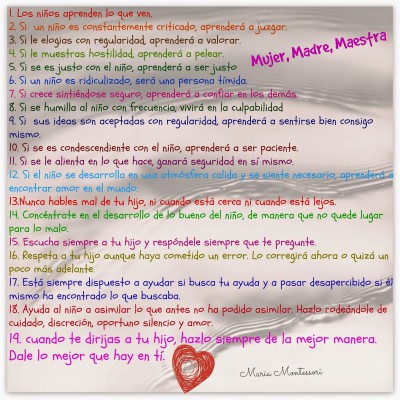 1. Los niños aprenden lo que ven.
2. Si un niño es constantemente criticado, aprenderá a juzgar.
3. Si le elogias con regularidad, aprenderá a valorar.
4. Si le muestras hostilidad, aprenderá a pelear.
Mujer, Madre, Maestra
5. Si se es justo con el niño, aprenderá a ser justo
6. Si un niño es ridiculizado, será una persona tímida.
7. Si crece sintiéndose seguro, aprenderá a confiar en los demás.
8. Si se humilla al niño con frecuencia, vivirá en la culpabilidad
9. Si sus ideas son aceptadas con regularidad, aprenderá a sentirse bien consigo
mismo.
10. Si se es condescendiente con el niño, aprenderá a ser paciente.
11. Si se le alienta en lo que hace, ganará seguridad en sí mismo.
12. Si el niño se desarrolla en una atmósfera calida y se siente necesario, aprenderá a
encontrar amor en el mundo.
13.Nunca hables mal de tu hijo, ni cuando está cerca ni cuando está lejos.
14. Concéntrate en el desarrollo de lo bueno del niño, de manera que no quede lugar
para lo malo.
15. Escucha siempre a tu hijo y respóndele siempre que te pregunte.
16. Respeta a tu hijo aunque haya cometido un error. Lo corregirá ahora o quizá un
poco más adelante.
17. Está siempre dispuesto a ayudar si busca tu ayuda y a pasar desapercibido si él
mismo ha encontrado lo que buscaba.
18. Ayuda al niño a asimilar lo que antes no ha podido asimilar. Hazlo rodeándole de
cuidado, discreción, oportuno silencio y amor.
19. cuando te dirijas a tu hijo, hazlo siempre de la mejor manera.
Dale lo mejor que hay en tí.
María Montessori